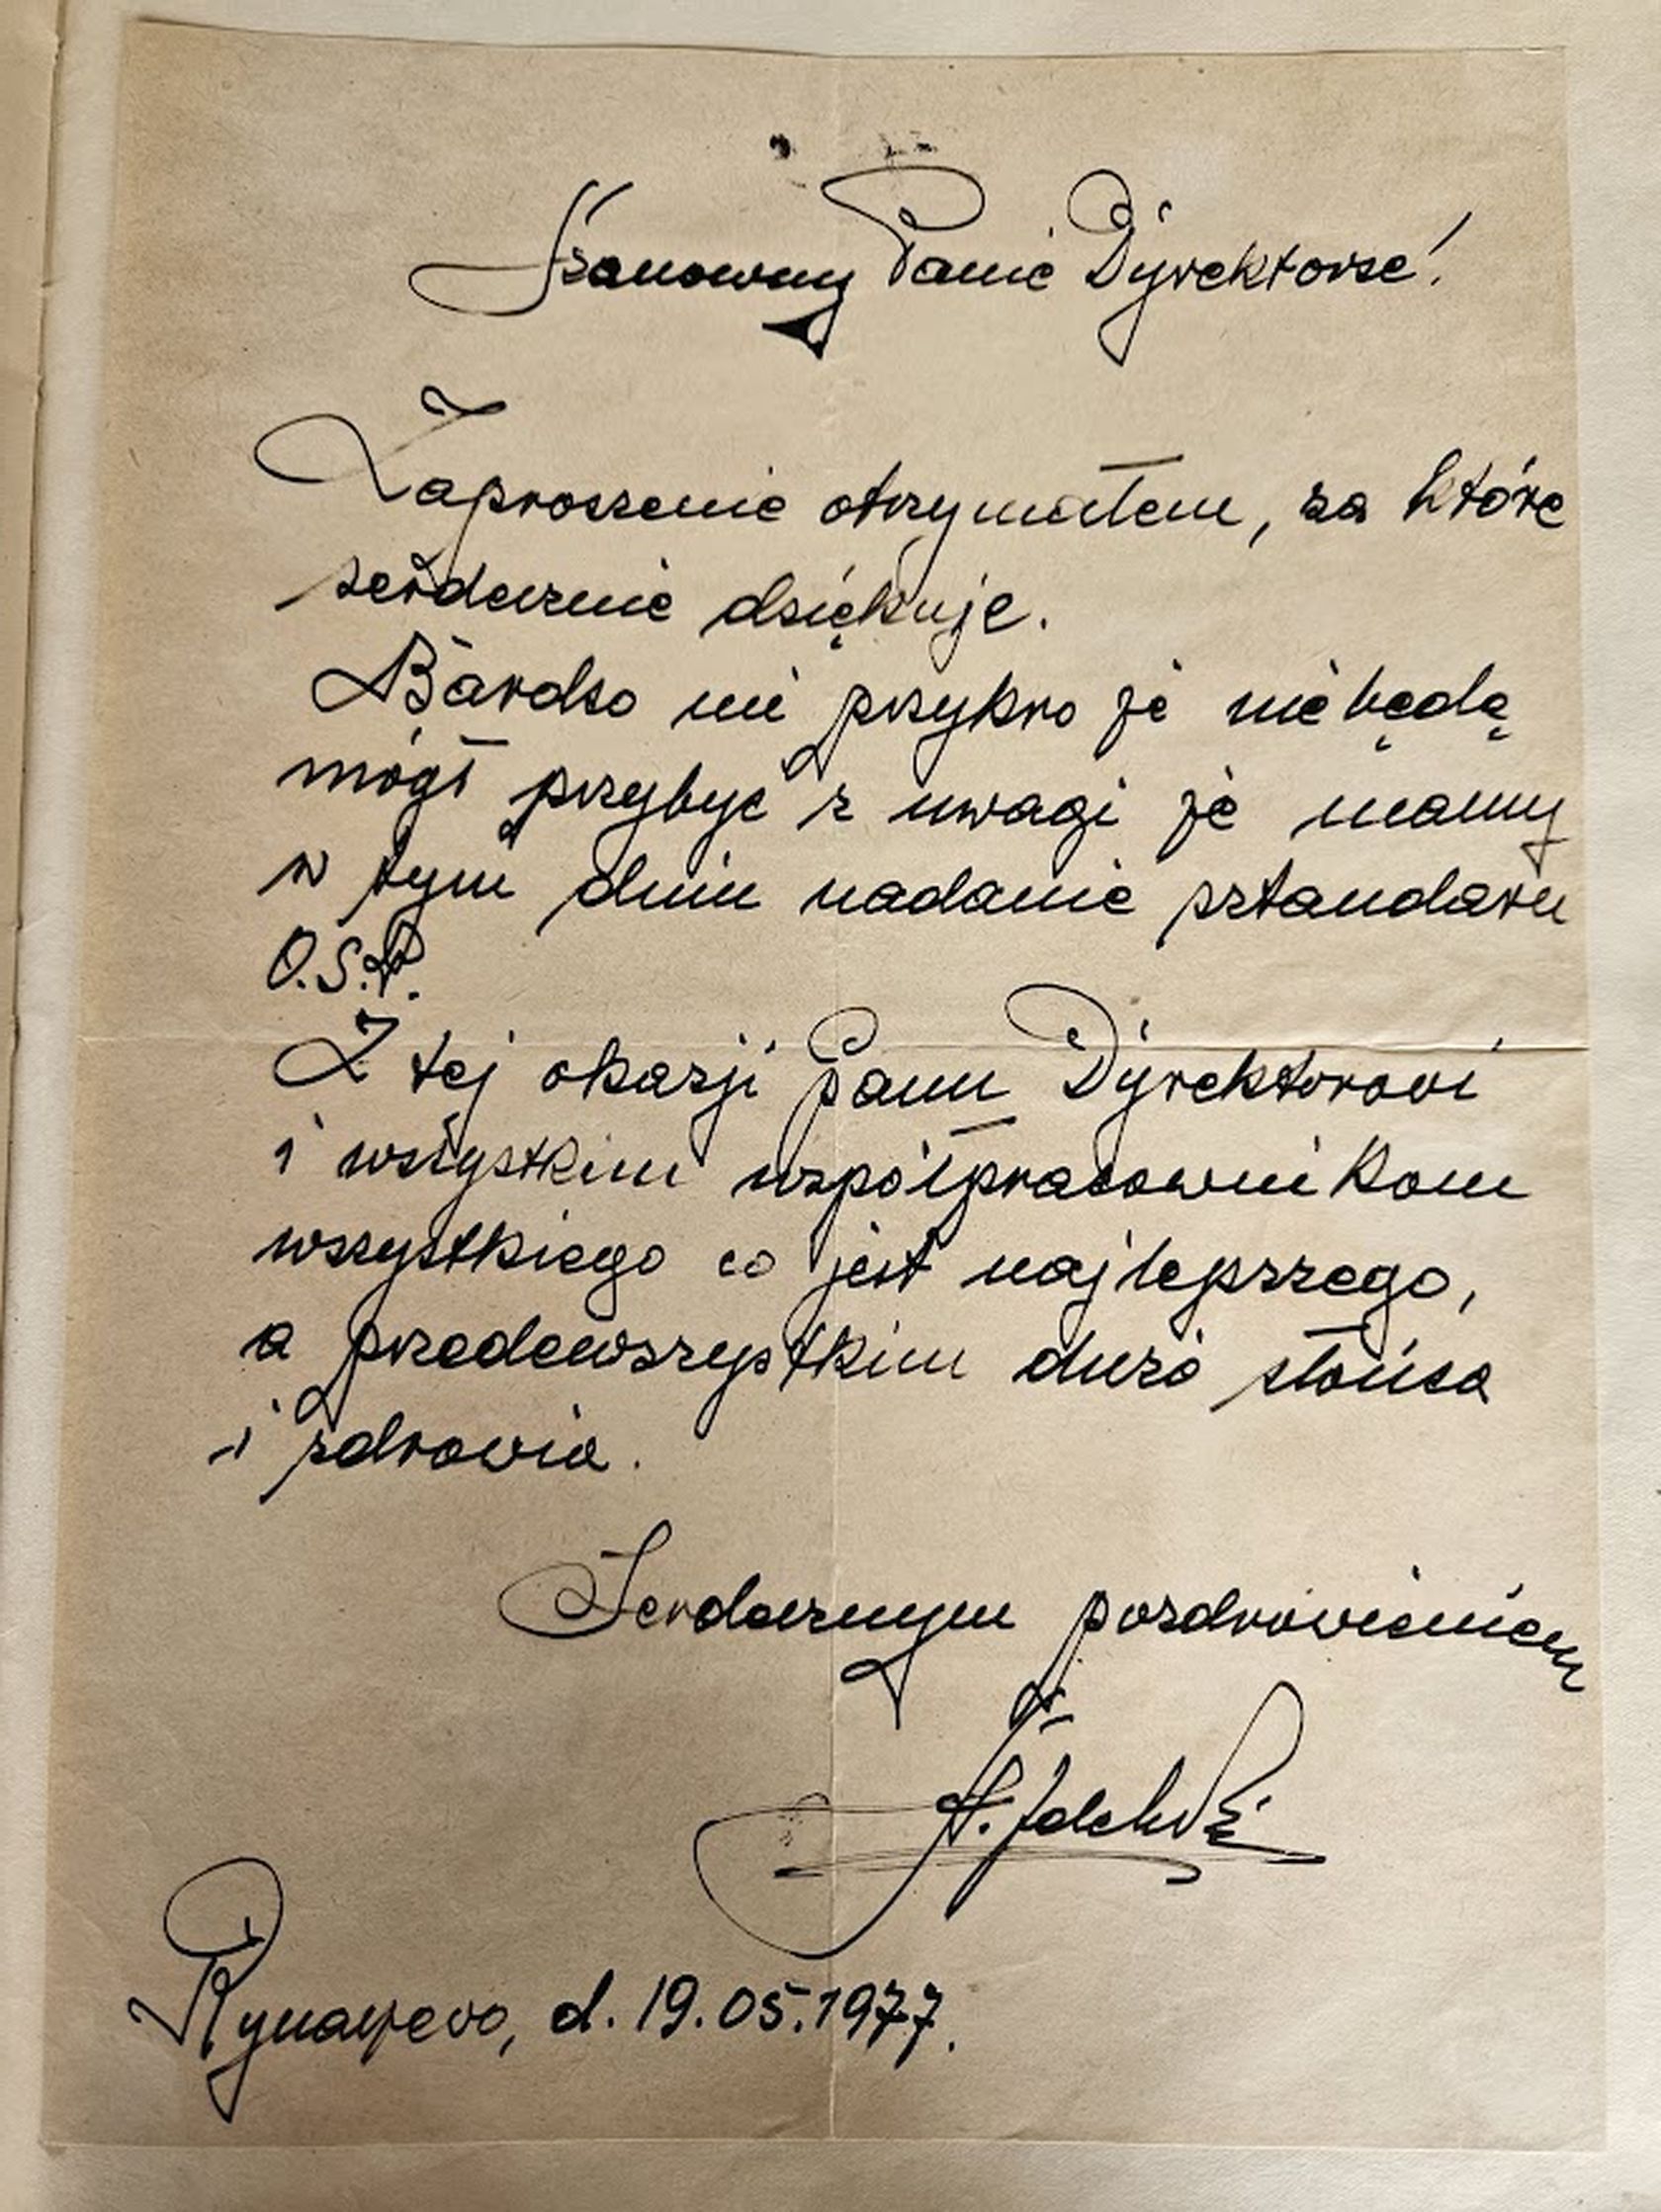 Szanowny Panie Dyrektorze!
Zaproszenie otrzymałem, za które
serdecznie dziękuje.
Bardzo mi przykro że nie będą
mógł przybyć z uwagi że mamy
w tym dniu nadanie sztandaru
O.S.P.
Z tej okazji Panu Dyrektorowi
i wszystkim współpracownikom
wszystkiego co jest najlepszego,
a przedewszystkim dużo słońca
i zdrowia.
Serdecznym pozdrowieniem
d. 19.05.1977.